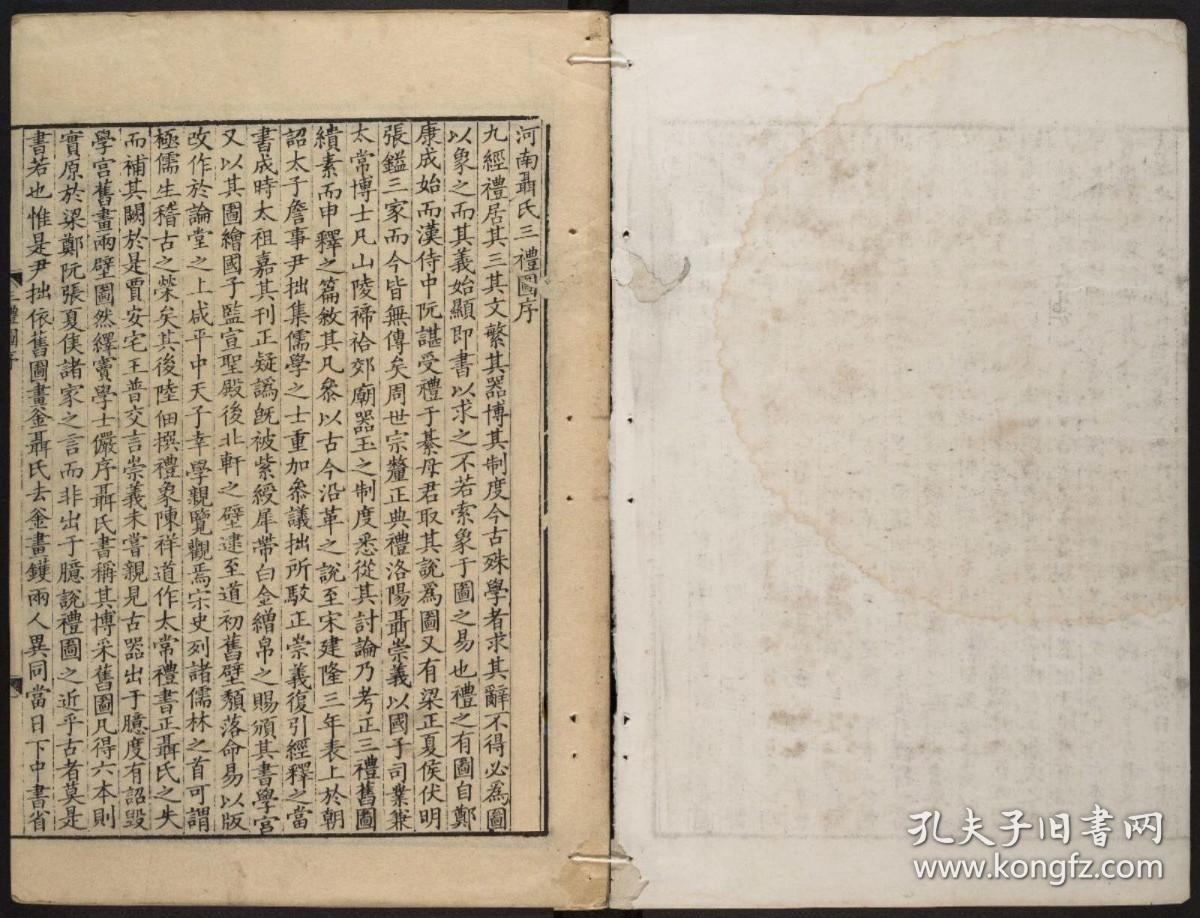 河南聶氏三禮圖序
九經禮居其三其文繁其器博其制度今古殊學者求其辭不得必為圖
以象之而其義始顯即書以求之不若索象于圖之易也禮之有圖自鄭
康成始而漢侍中阮諶受禮于綦母君取其說為圖又有梁正夏侯伏明
張鎰三家而今皆無傳矣周世宗釐正典禮洛陽聶崇義以國子司業兼
太常博士凡山陵禘祫郊廟器玉之制度悉從其討論乃考正三禮舊圖
繢素而申釋之篇敘其凡叅以古今沿革之說至宋建隆三年表上於朝
詔太子詹事尹拙集儒學之士重加叅議拙所駁正崇義復引經釋之當
書成時太祖嘉其刊正疑譌既被紫綬犀帶白金繒帛之賜頒其書學宮
又以其圖繪國子監宣聖殿後北軒之壁逮至道初舊壁頽落命易以版
改作於論堂之上咸平中天子幸學親覽觀焉宋史列諸儒林之首可謂
極儒生稽古之榮矣其後陸佃撰禮象陳祥道作太常禮書正聶氏之失
而補其闕於是賈安宅王普交言崇義未嘗親見古器出于臆度有詔毀
學宮舊畫兩壁圖然繹竇學士儼序聶氏書稱其博采舊圖凡得六本則
實原於梁鄭阮張夏侯諸家之言而非出于臆說禮圖之近乎古者莫是
書若也惟是尹拙依舊圖畫釜聶氏去釜畫鑊兩人異同當日下中書省
三禮圖序
孔夫子旧书网
www.kongfz.com